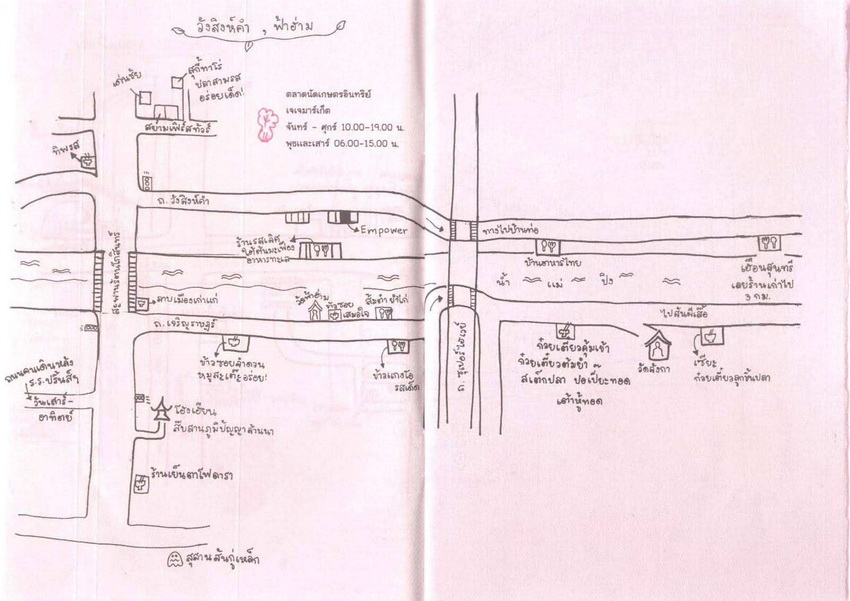 วังสิงห์คำ , ฟ้าฮ่าม
เด่นชัย
สุกี้ทาโร่
ปลาสามรส
อร่อยเด็ด!
สยามเฟิร์สทัวร์
ตลาดนัดเกษตรอินทรีย์
เจเจมาร์เก็ต
จันทร์ - ศุกร์ 10.00-19.00 น.
พุธและเสาร์ 06.00-15.00 น.
ทิพรส
ถ. วังสิงห์คำ
Empower
ร้านรสเลิศ
ใต้ต้นมะเฟือง
อาหารทะเล
ทางไปบ้านท่อ
บ้านอาหารไทย
เฮือนสุนทรี
เลยร้านเก่าไป
3 กม.
สะพานรัตนโกสินทร์
น้ำ แม่ ปิง
ลาบเมืองเก่าแก่
วัดฟ้าฮ่าม
ข้าวซอย
เสมอใจ
ส้มตำ ยำไก่
ถ. เจริญราษฎร์
ไปสันผีเสื้อ
ถ. ซุปเปอร์ไฮเวย์
ข้าวซอยลำดวน
หมูสะเต๊ะอร่อย!
ข้าวแกงโอ
รสเด็ด
ก๋วยเตี๋ยวคุ้มเจ้า
ก๋วยเตี๋ยวต้มยำ
สเต๊กปลา ปอเปี๊ยะทอด
เต้าหู้ทอด
วัดลังกา
เซี๊ยะ
ก๋วยเตี๋ยวลูกชิ้นปลา
ถนนคนเดินหลัง
ร.ร.ปริ้นส์ฯ
วันเสาร์-
อาทิตย์
โฮงเฮียน
สืบสานภูมิปัญญาล้านนา
ร้านเย็นตาโฟดารา
สุสานสันกู่เหล็ก